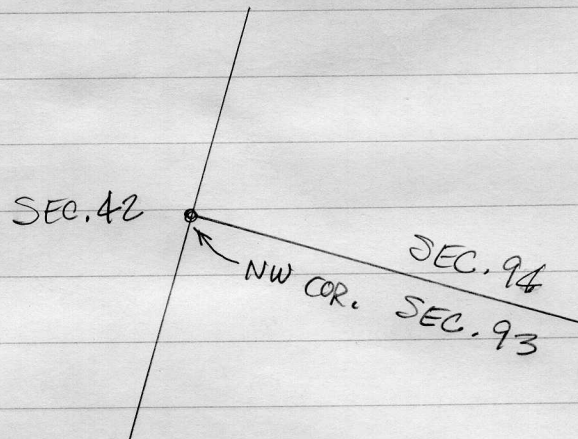 SEC. 42
SEC. 94
NW COR.
SEC. 93